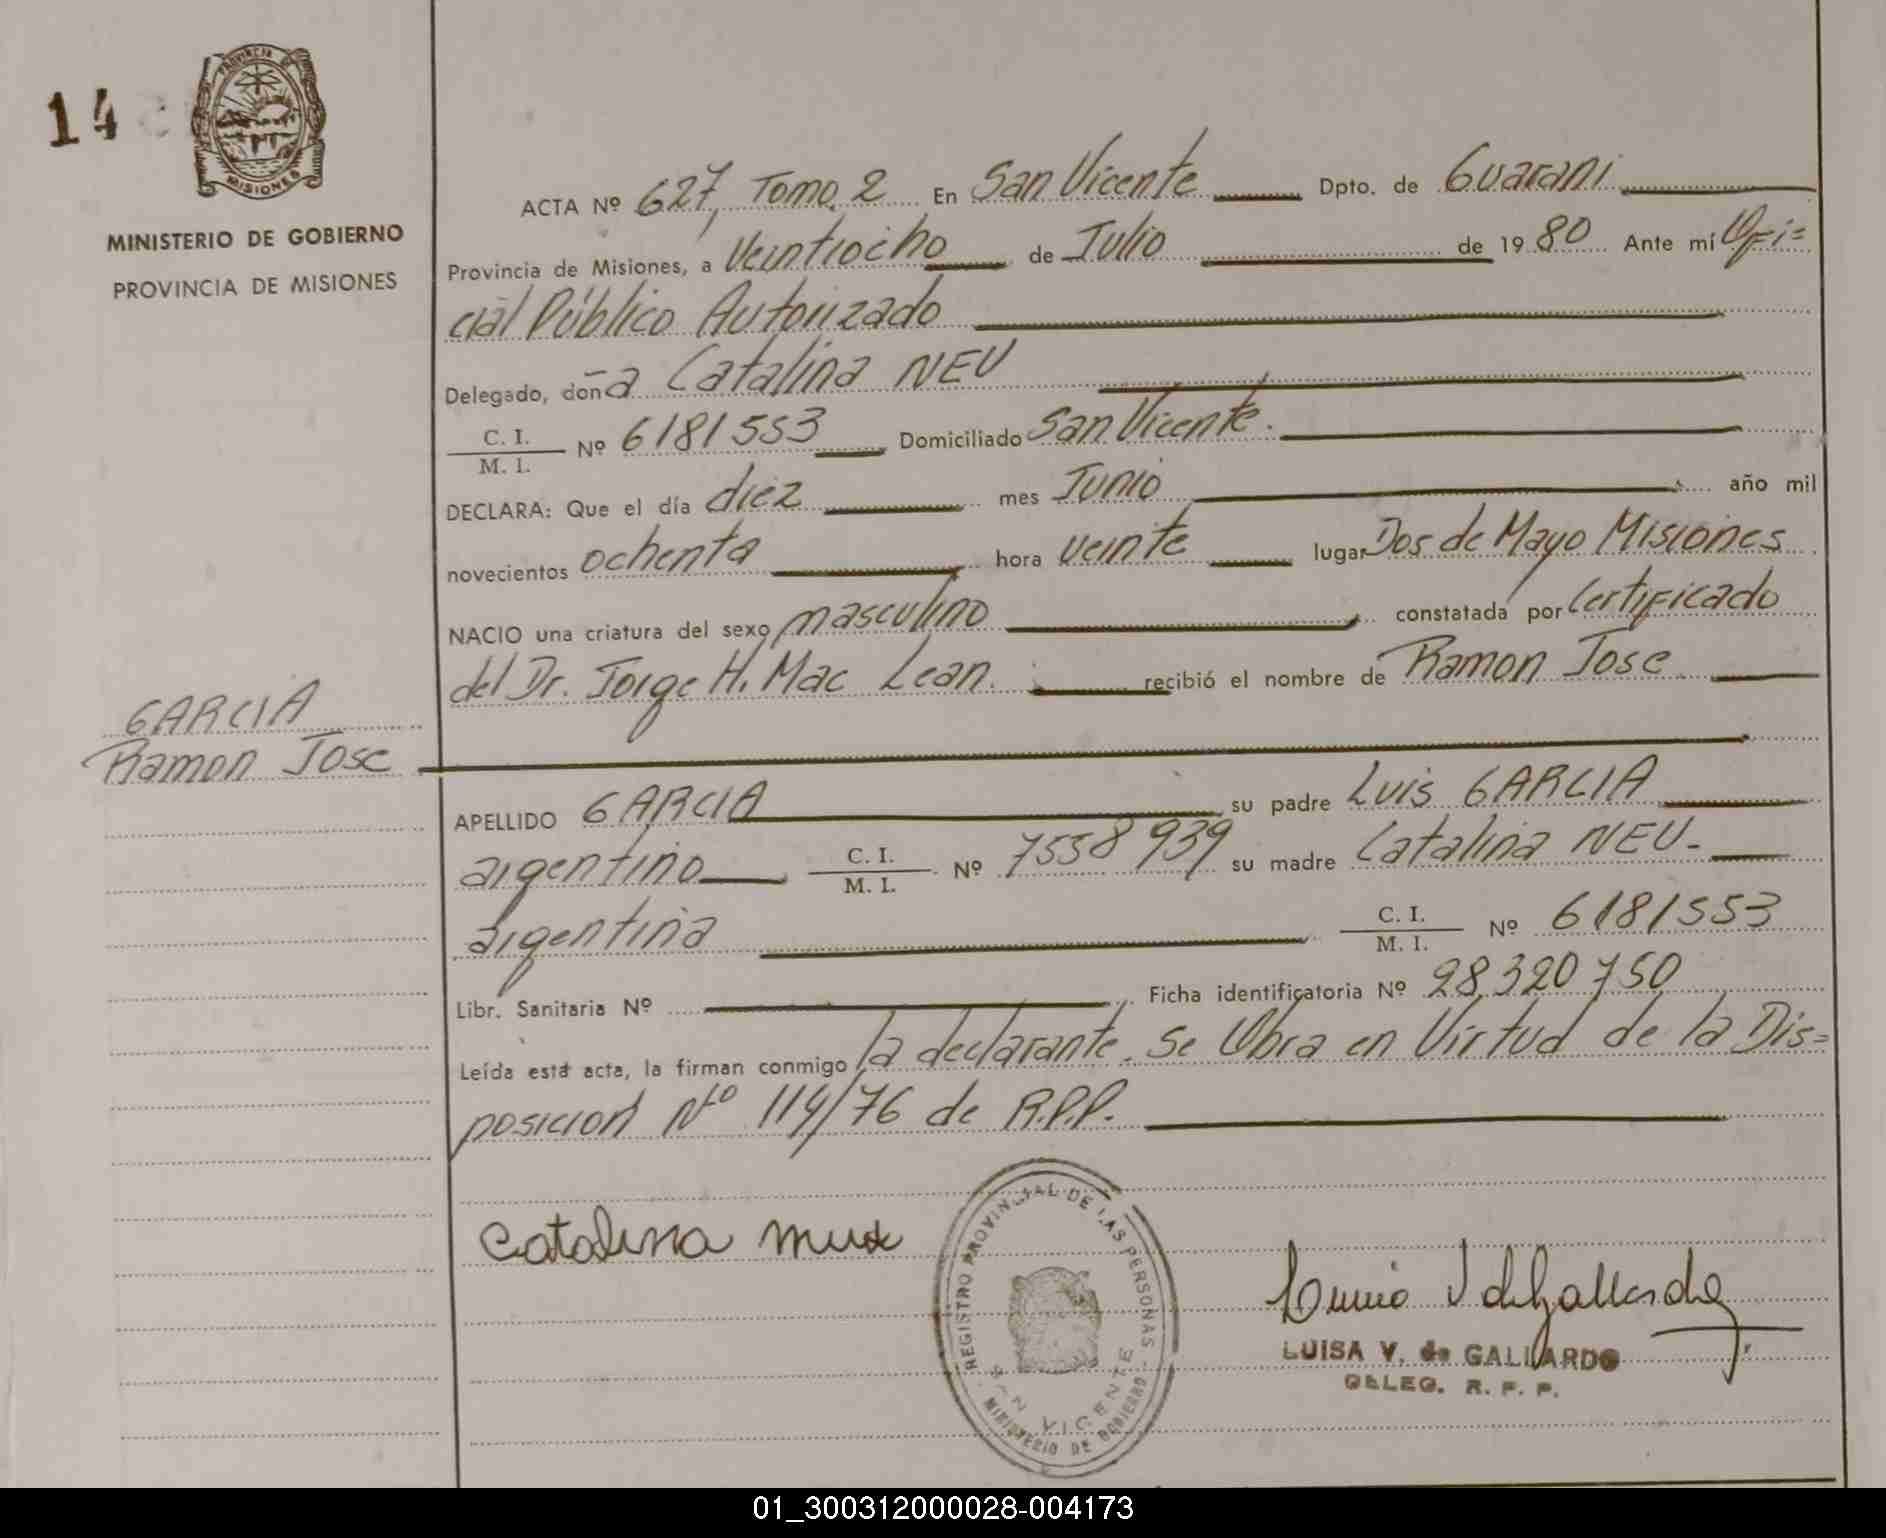 14
PROVINCIA DE
MISIONES
MINISTERIO DE GOBIERNO
PROVINCIA DE MISIONES
ACTA Nº 627, Tomo 2 En San Vicente Dpto. de Guarani
Provincia de Misiones, a Veintiocho de Julio de 1980 Ante mí Ofi=
cial Público Autorizado
Delegado, doña Catalina NEU
C. I.
M. I. Nº 6181553 Domiciliado San Vicente.
DECLARA: Que el día diez mes Junio año mil
novecientos ochenta hora veinte lugar Dos de Mayo Misiones
NACIO una criatura del sexo masculino constatada por Certificado
del Dr. Jorge H. Mac Lean. recibió el nombre de Ramon Jose
GARCIA
Ramon Jose
APELLIDO GARCIA su padre Luis GARCIA
argentino C. I.
M. I. Nº 7558939 su madre Catalina NEU.
argentina C. I.
M. I. Nº 6181553
Libr. Sanitaria Nº Ficha identificatoria Nº 28.320750
Leída esta acta, la firman conmigo la declarante. Se Obra en Virtud de la Dis=
posicion Nto 114/76 de R.P.P.
REGISTRO PROVINCIAL DE LAS PERSONAS
SAN VICENTE
MINISTERIO DE GOBIERNO
Catalina
LUISA V. de GALLARDO
DELEG. R. P. P.
01_300312000028-004173